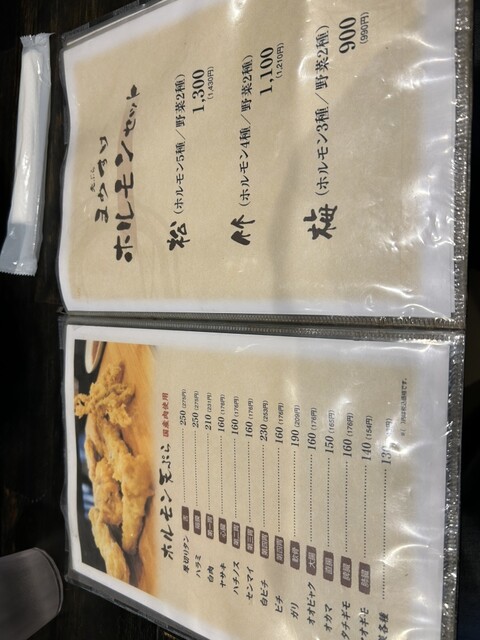 天ぷら
まかせり
ホルモンセット
松 (ホルモン5種／野菜2種)
1,300
(1,430円)
竹 (ホルモン4種／野菜2種)
1,100
(1,210円)
梅 (ホルモン3種／野菜2種)
900
(990円)
ホルモン天ぷら 国産肉使用
厚切りタン 250 (275円)
ハラミ 250 (275円)
210 (231円)
ヤサキ 心臓 160 (176円)
ハチノス 第二胃 160 (176円)
センマイ 第三胃 160 (176円)
白ヒチ 第四胃 230 (253円)
ビチ 第四胃 160 (176円)
ガリ 軟骨 190 (209円)
オオビャク 大腸 160 (176円)
オカマ 直腸 150 (165円)
タチギモ 脾臓 160 (176円)
140 (154円)
菜各種